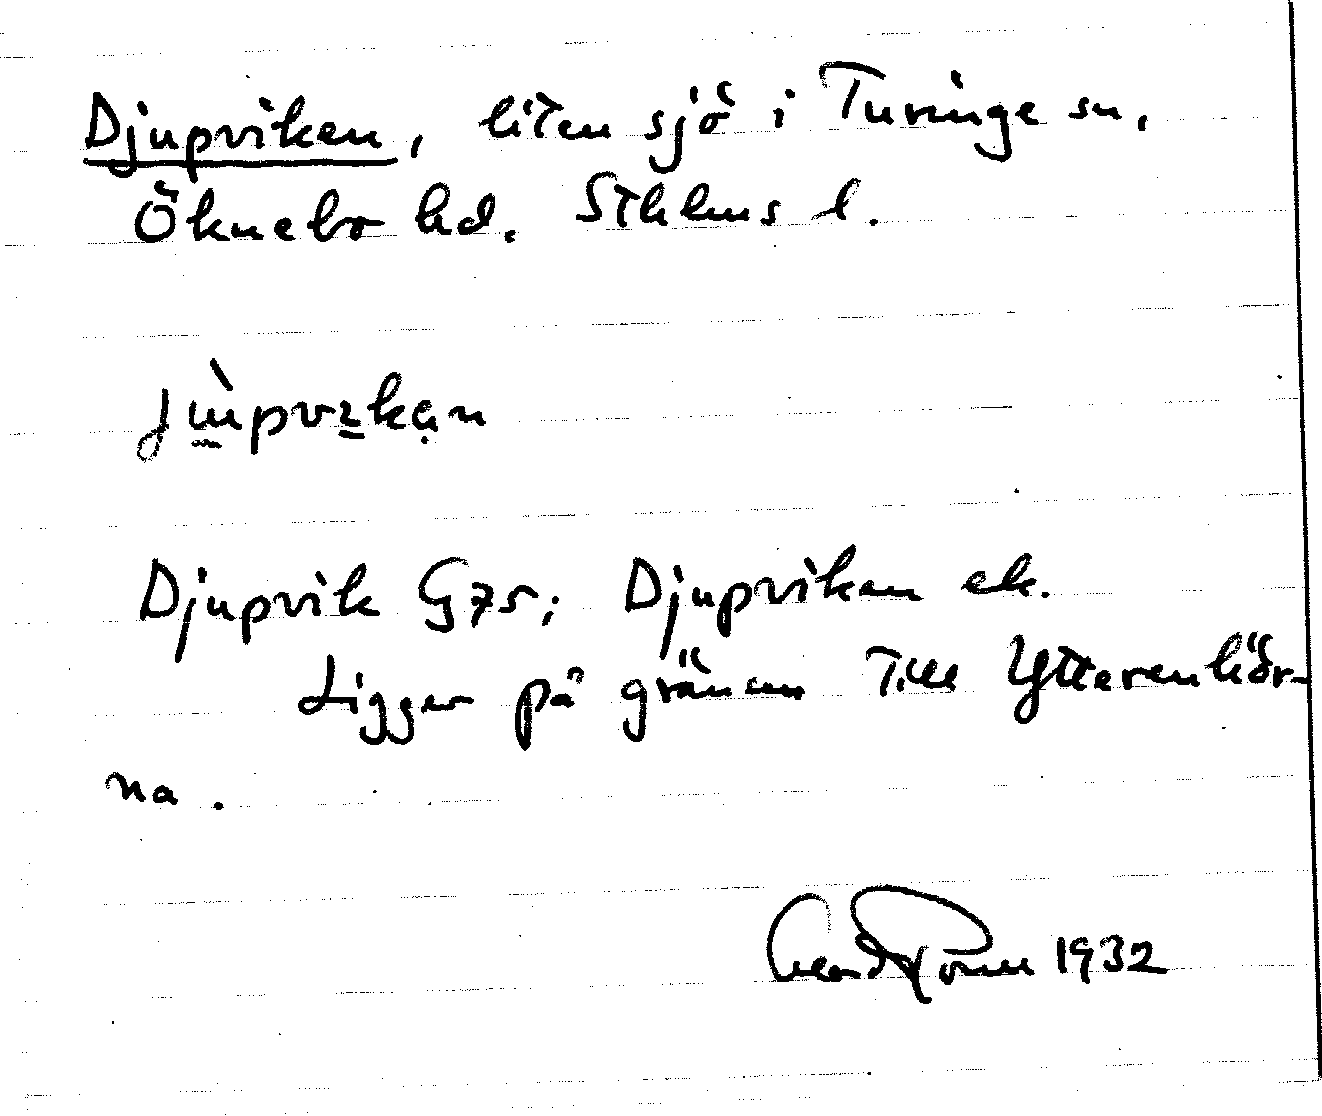 Djupviken, liten sjö i Turinge sn,
Öknebo hd. Sthlms l.
Djupvik G75; Djupviken ek.
Ligger på gränsen till Ytterenhör-
na.
1932